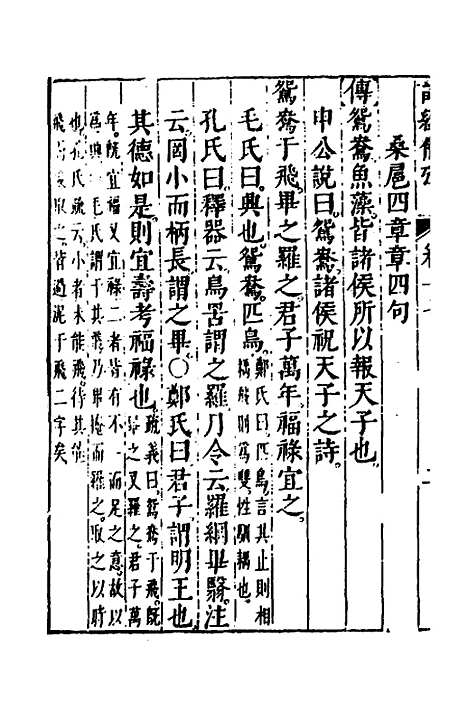 桑扈四章章四句
傳鴛鴦魚藻皆諸侯所以報天子也
申公說曰鴛鴦諸侯祝天子之詩
鴛鴦于飛畢之羅之君子萬年福祿宜之
毛氏曰興也鴛鴦匹鳥鄭氏曰匹鳥言其止則相
耦飛則為雙性馴耦也
孔氏曰釋器云鳥罟謂之羅月令云羅網畢翳注
云罔小而柄長謂之畢○鄭氏曰君子謂明王也
其德如是則宜壽考福祿也疏義曰鴛鴦于飛既
畢之又羅之君子萬
年既宜福又宜祿二者皆有不一而足之意故以
為興 毛氏謂于其飛乃畢掩而羅之取之以時
也孔氏疏云小者未能飛待其能
飛 後取之皆過泥于飛二字矣